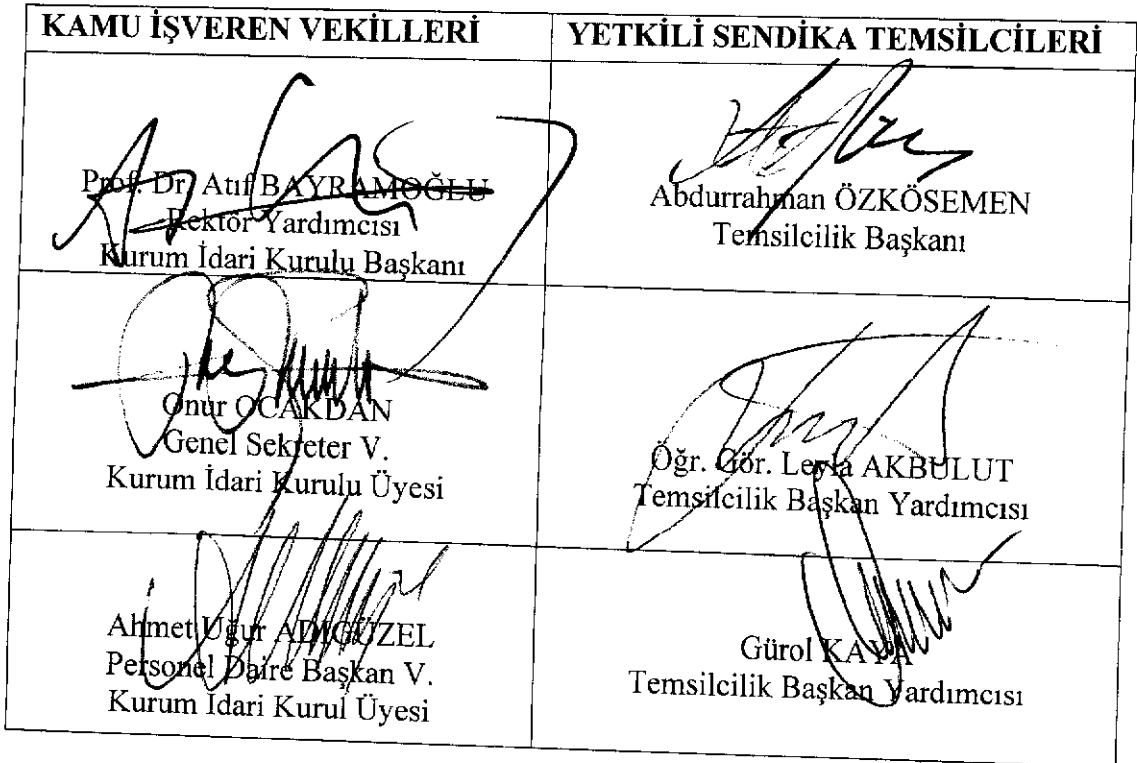 KAMU İŞVEREN VEKİLLERİ
YETKİLİ SENDİKA TEMSİLCİLERİ
Prof. Dr. Atıf BAYRAMOĞLU
Rektör Yardımcısı
Kurum İdari Kurulu Başkanı
Abdurrahman ÖZKÖSEMEN
Temsilcilik Başkanı
Onur OCAKDAN
Genel Sekreter V.
Kurum İdari Kurulu Üyesi
Öğr. Gör. Leyla AKBULUT
Temsilcilik Başkan Yardımcısı
Ahmet Uğur ADIGÜZEL
Personel Daire Başkan V.
Kurum İdari Kurul Üyesi
Gürol KAYA
Temsilcilik Başkan Yardımcısı